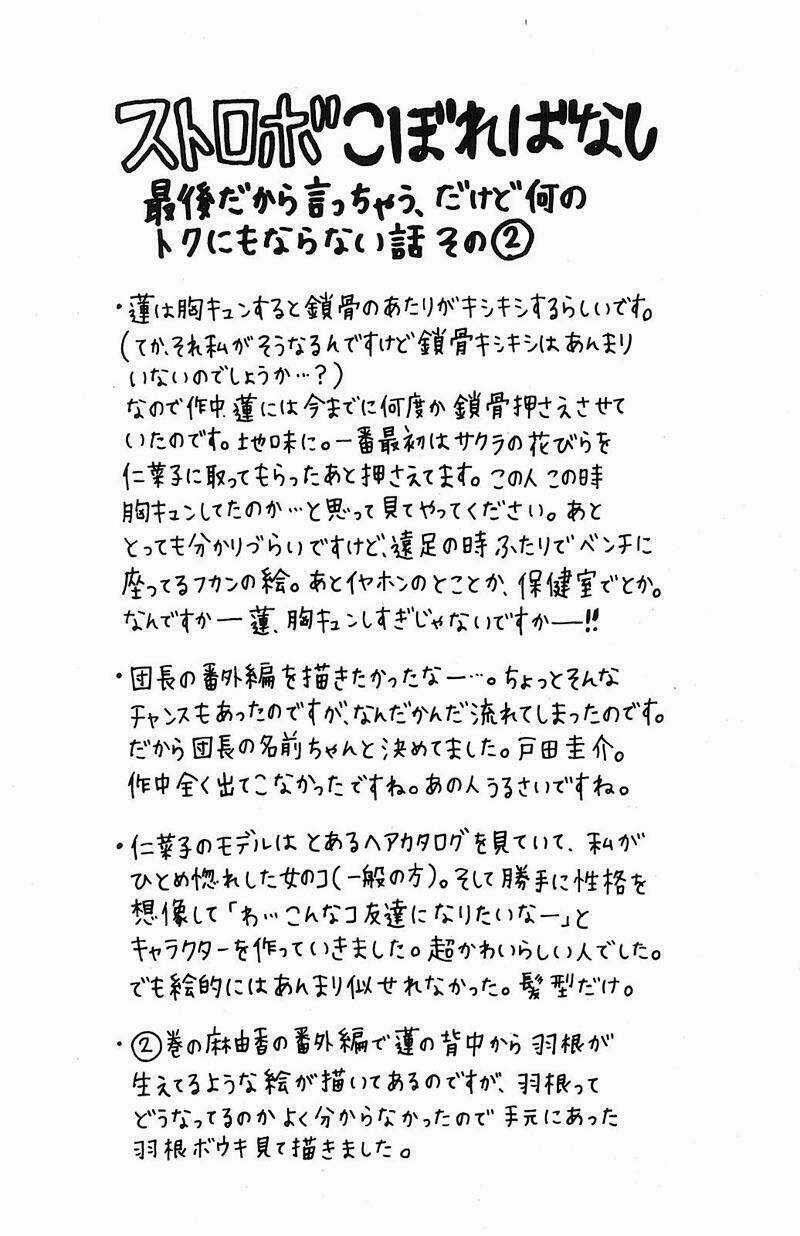 ストロボこぼればなし
最後だから言っちゃう、だけど何の
トクにもならない話 その②
・蓮は胸キュンすると鎖骨のあたりがキシキシするらしいです。
（てか、それ私がそうなるんですけど鎖骨キシキシはあんまり
いないのでしょうか…？）
なので作中、蓮には今までに何度か鎖骨押さえさせて
いたのです。地味に。一番最初はサクラの花びらを
仁菜子に取ってもらったあと押さえてます。この人 この時
胸キュンしてたのか…と思って見てやってください。あと
とっても分かりづらいですけど、遠足の時ふたりでベンチに
座ってるフカンの絵。あとイヤホンのとことか、保健室でとか。
なんですかー蓮、胸キュンしすぎじゃないですかー!!
・団長の番外編を描きたかったなー…。ちょっとそんな
チャンスもあったのですが、なんだかんだ流れてしまったのです。
だから団長の名前ちゃんと決めてました。戸田圭介。
作中全く出てこなかったですね。あの人うるさいですね。
・仁菜子のモデルは とあるヘアカタログを見ていて、私が
ひとめ惚れした女のコ（一般の方）。そして勝手に性格を
想像して「わ…こんなコ友達になりたいなー」と
キャラクターを作っていきました。超かわいらしい人でした。
でも絵的にはあんまり似せれなかった。髪型だけ。
・②巻の麻由香の番外編で蓮の背中から羽根が
生えてるような絵が描いてあるのですが、羽根って
どうなってるのかよく分からなかったので手元にあった
羽根ボウキ見て描きました。